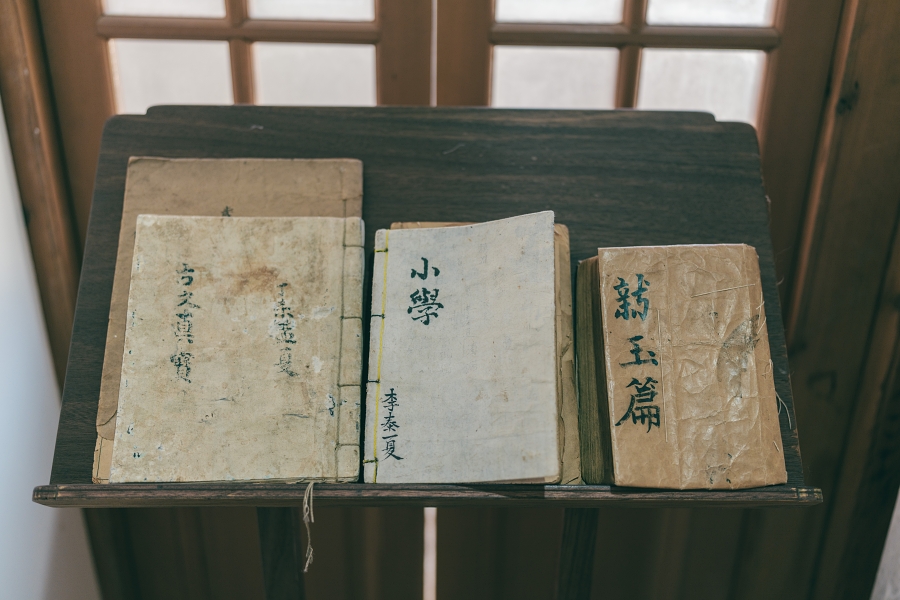 古文眞寶
孟夏
小學
李泰夏
新玉篇